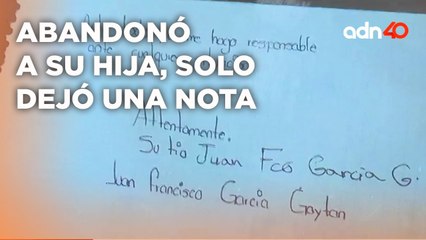 ABANDONÓ
A SU HIJA, SOLO
DEJÓ UNA NOTA
adn40
hago responsable
Attentamente.
Su tio Juan Fco Garcia G.
Juan Francisco Garcia Gaytan